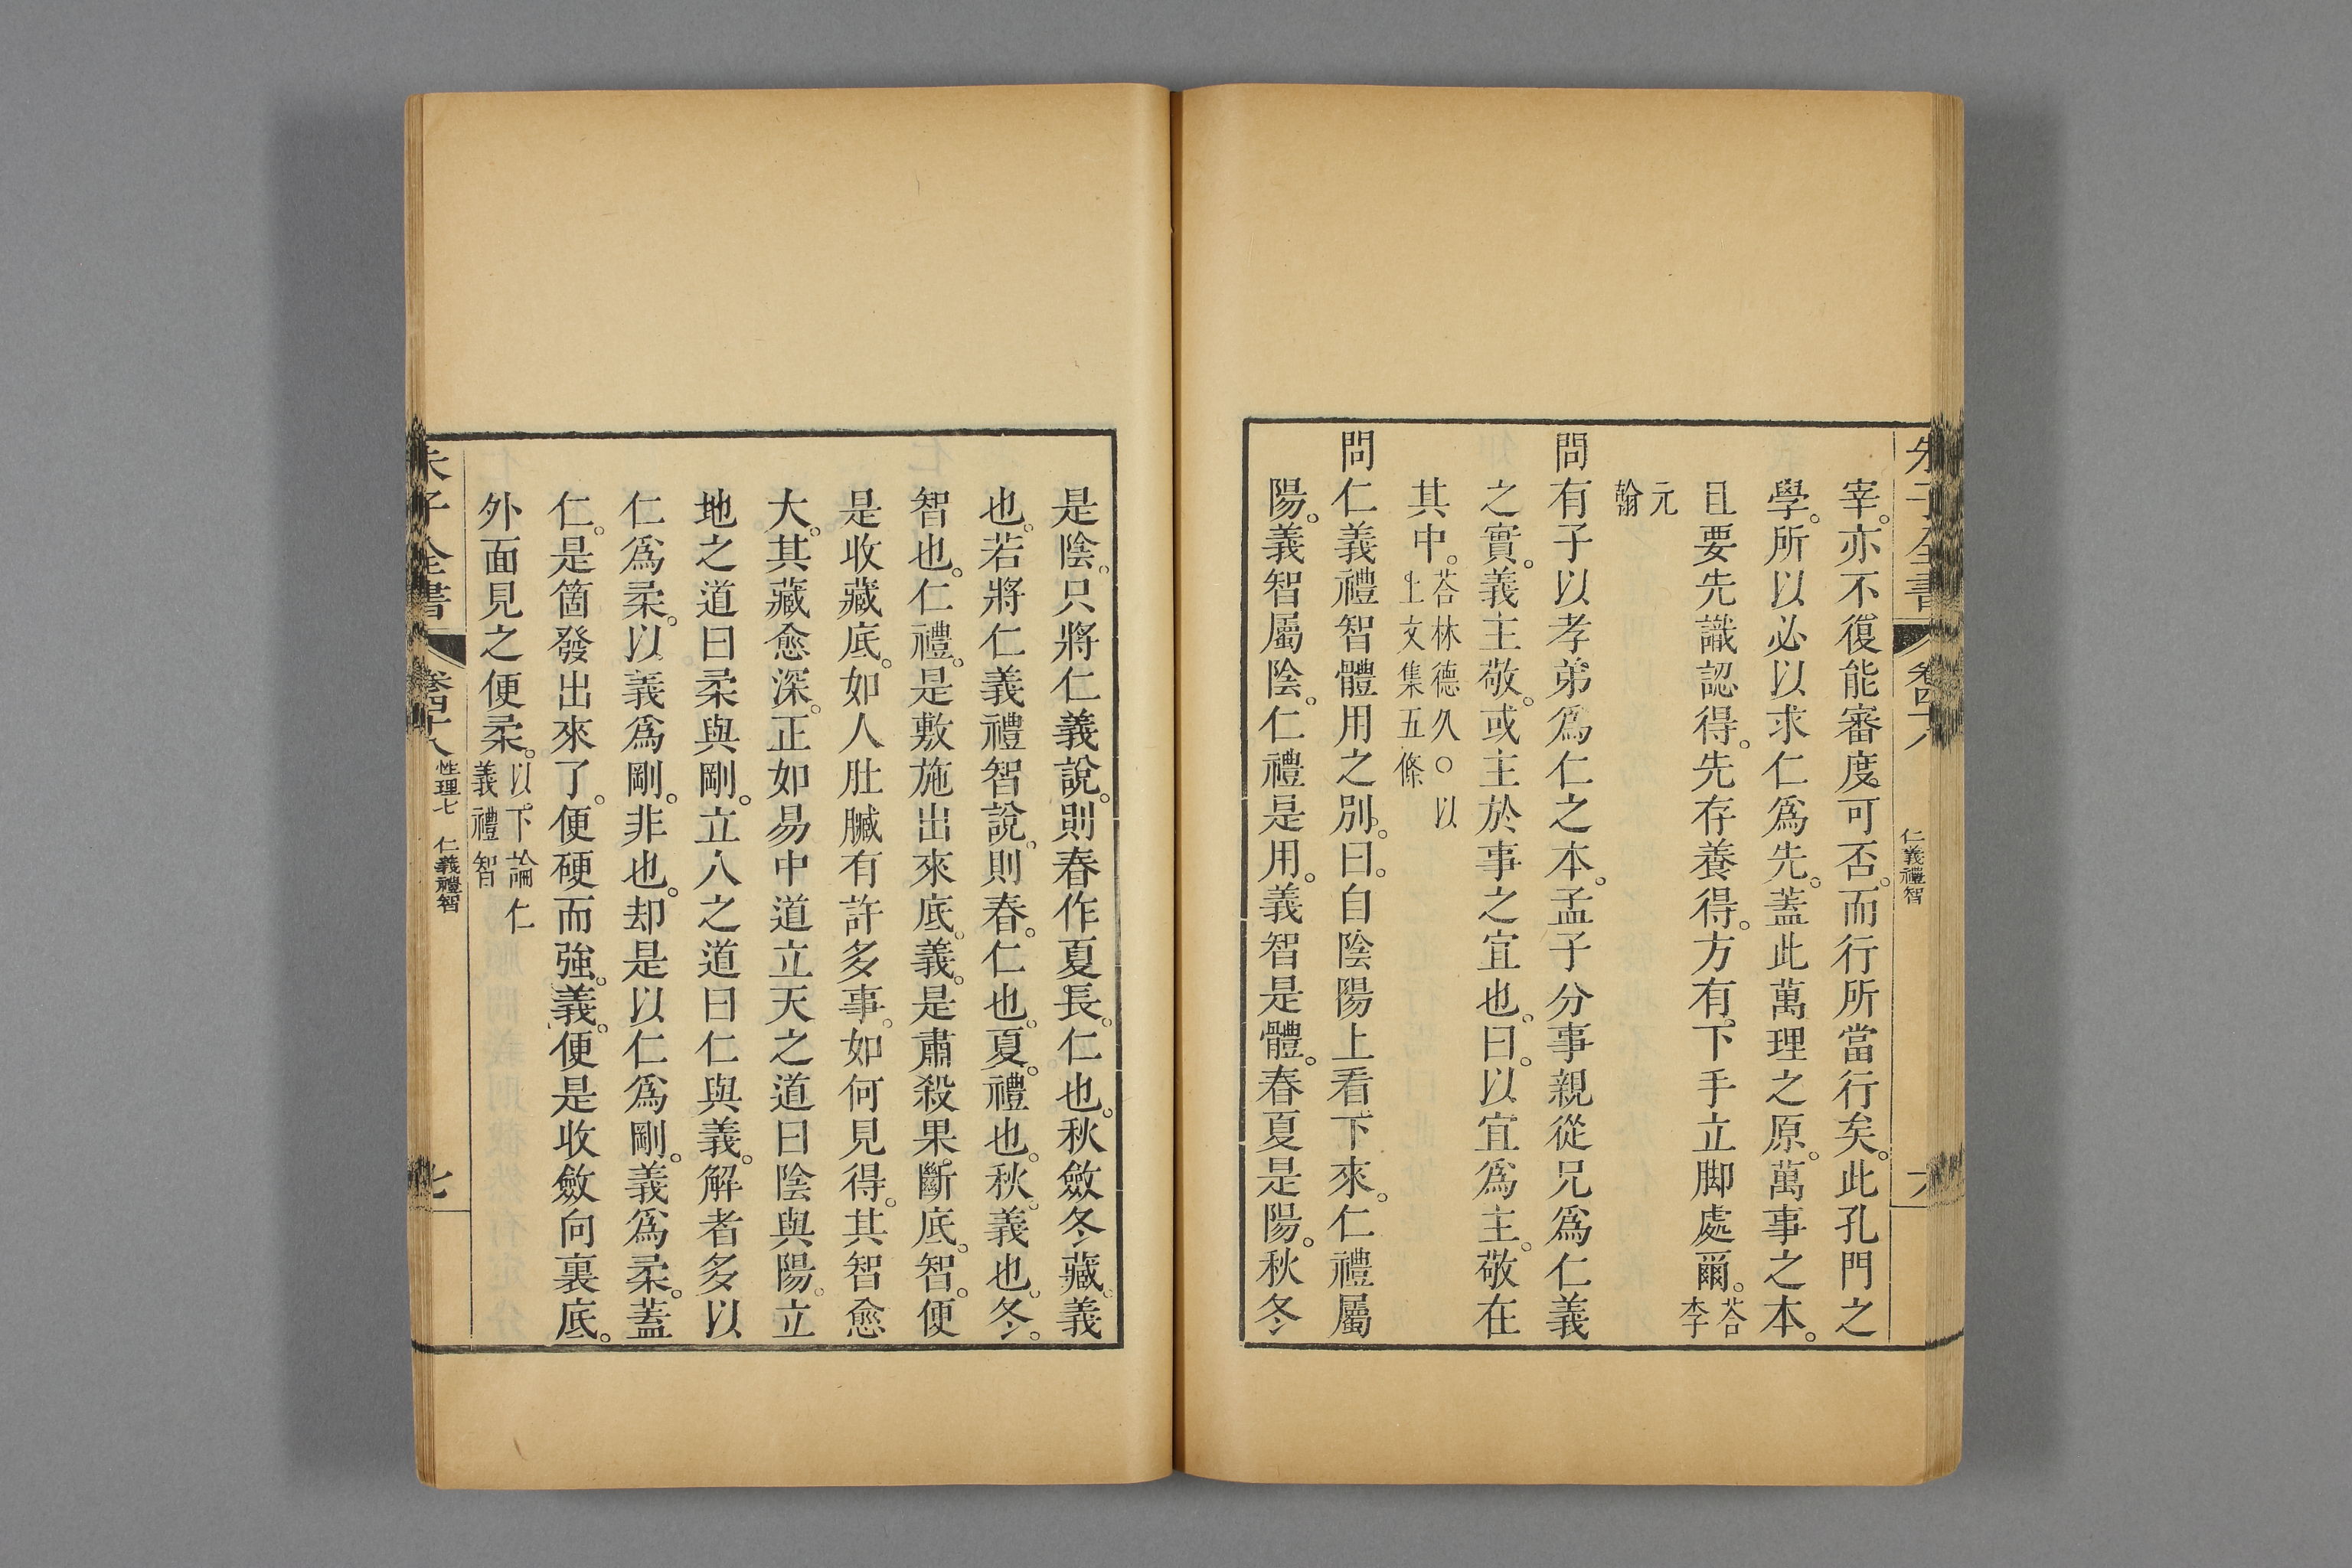 宰。亦不復能審度可否。而行所當行矣。此孔門之
學。所以必以求仁爲先。蓋此萬理之原。萬事之本。
且要先識認得。先存養得。方有下手立脚處爾。荅李
元翰
問有子以孝弟爲仁之本。孟子分事親從兄爲仁義
之實。義主敬。或主於事之宜也。曰。以宜爲主。敬在
其中。荅林德久○以上文集五條
問仁義禮智體用之別。曰。自陰陽上看下來。仁禮屬
陽。義智屬陰。仁禮是用。義智是體。春夏是陽。秋冬
仁義禮智
是陰。只將仁義說。則春作夏長。仁也。秋斂冬藏。義
也。若將仁義禮智說。則春。仁也。夏。禮也。秋。義也。冬。
智也。仁禮。是敷施出來底。義。是肅殺果斷底。智。便
是收藏底。如人肚臟有許多事。如何見得。其智愈
大。其藏愈深。正如易中道立天之道曰陰與陽。立
地之道曰柔與剛。立人之道曰仁與義。解者多以
仁爲柔。以義爲剛。非也。却是以仁爲剛。義爲柔。蓋
仁。是箇發出來了。便硬而強。義。便是收斂向裏底。
外面見之便柔。以下論仁義禮智
朱子全書 卷四十八 性理七 仁義禮智 七